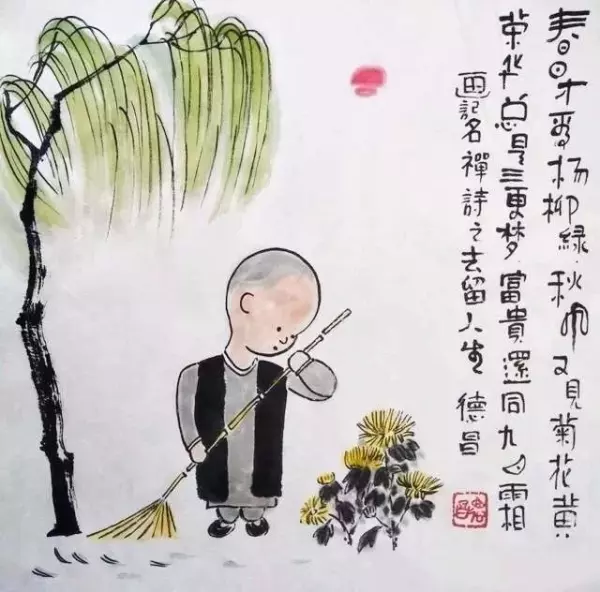 春日才看杨柳緑.秋风又見菊花黄
荣华总是三更梦.富貴還同九月霜
画記名禪詩之去留人生 德昌